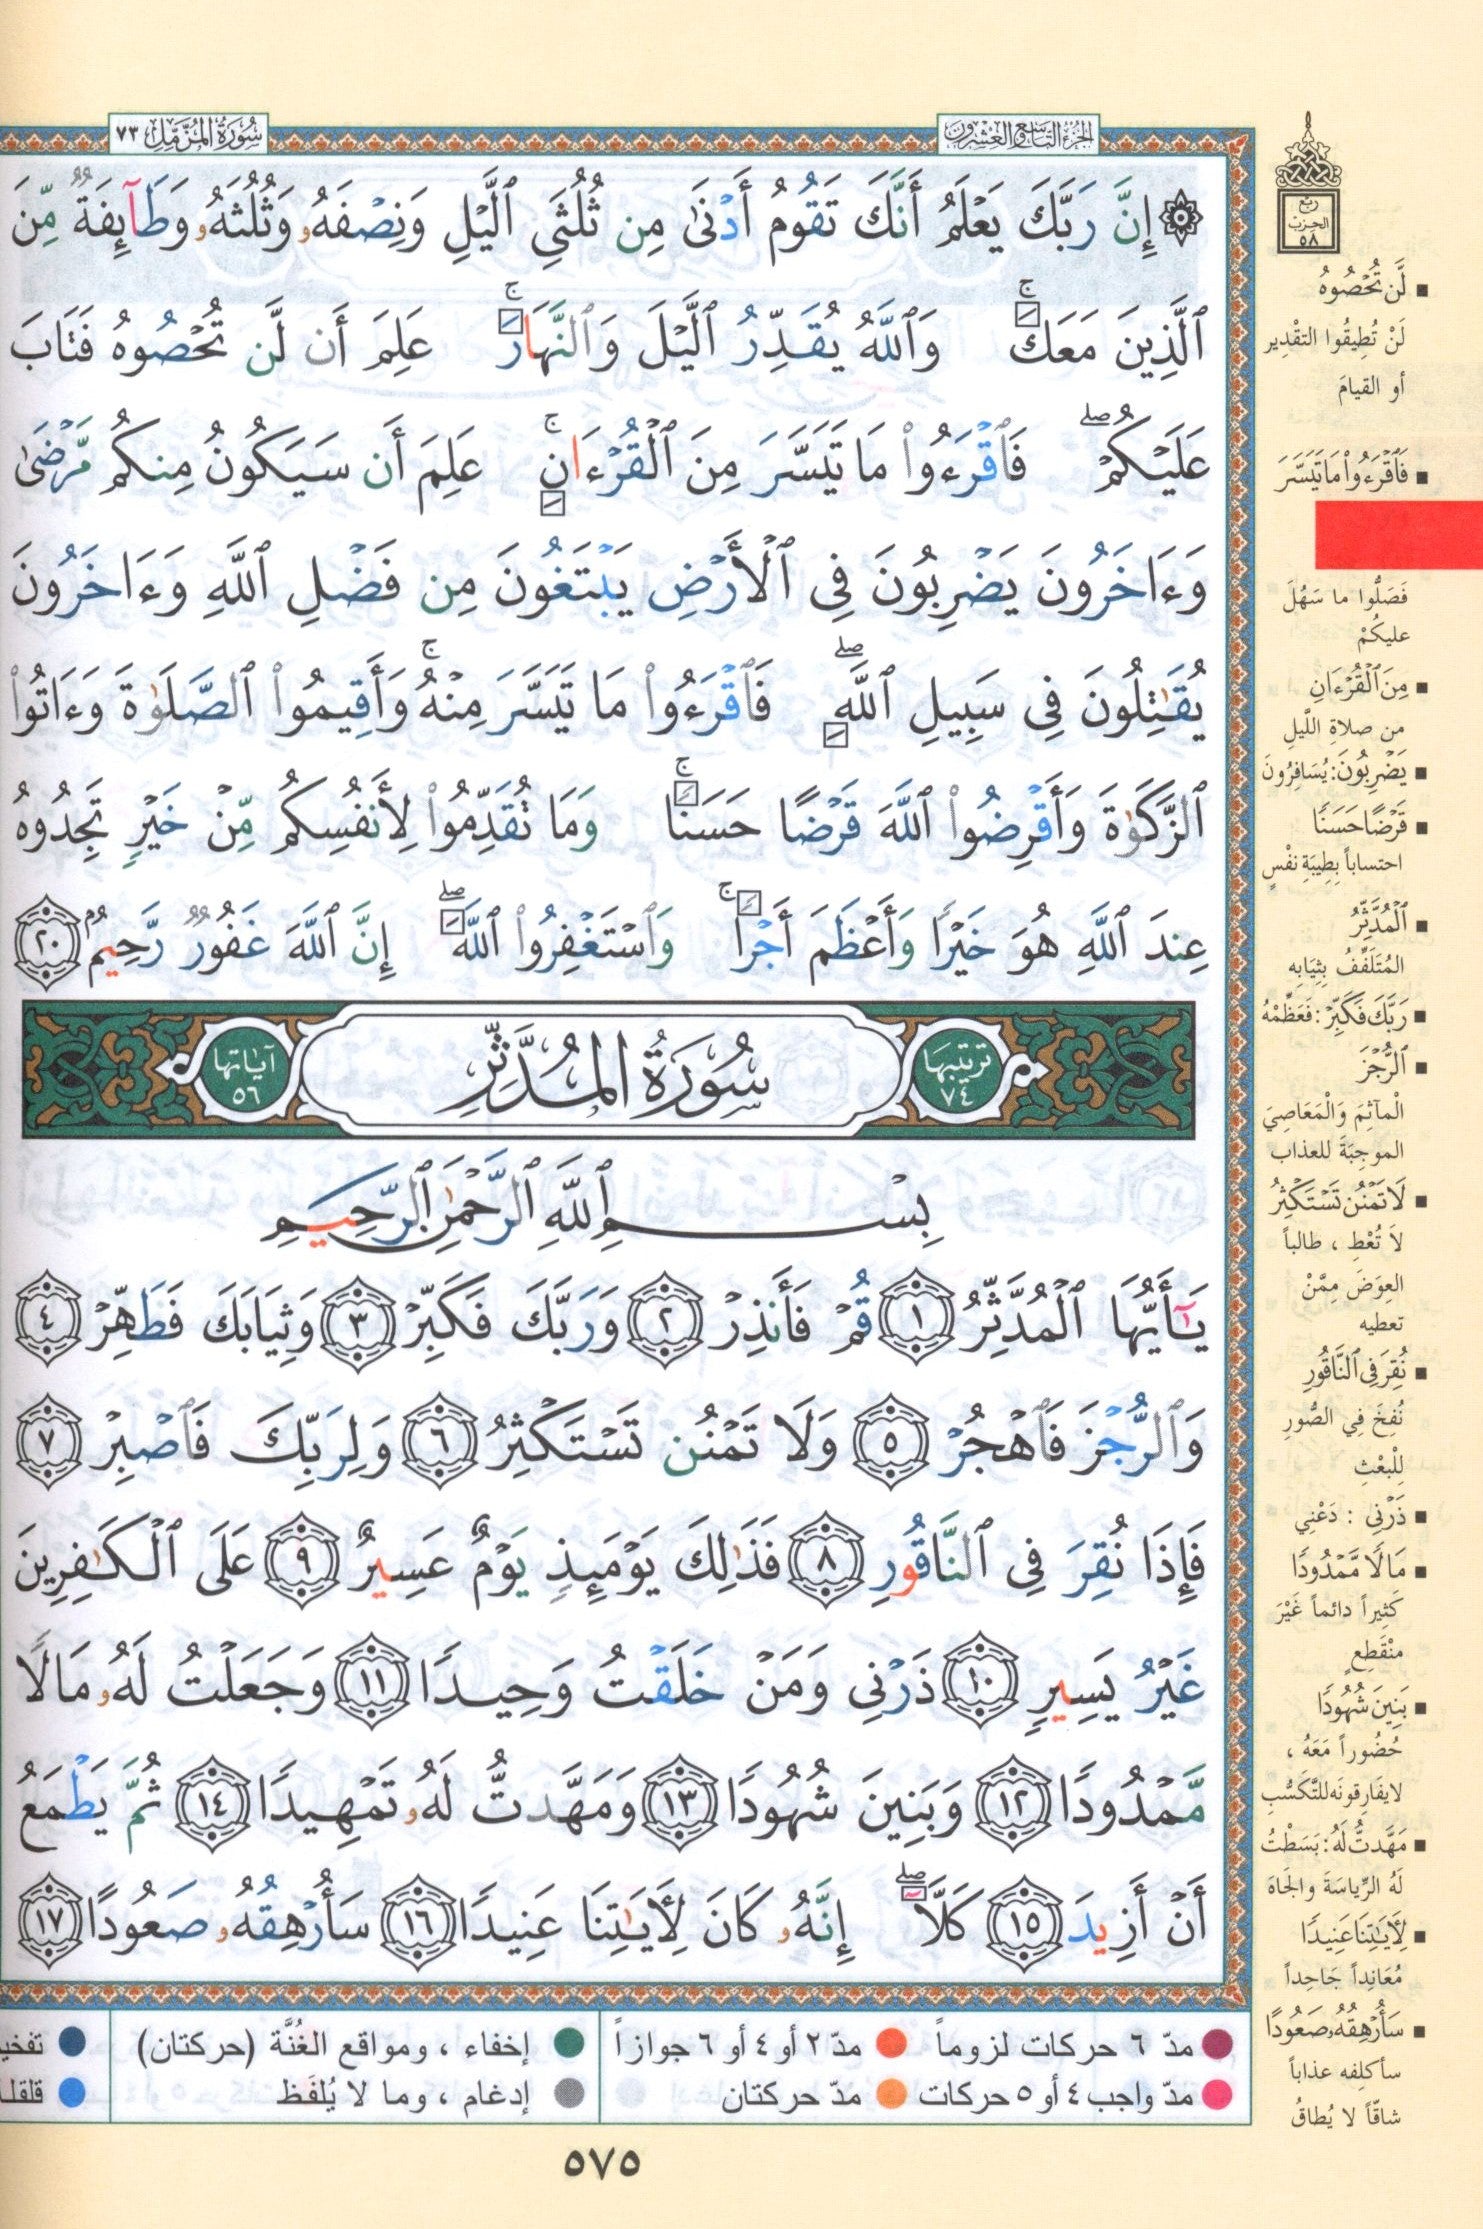 سُورَةُ المُزَّمِّل ٧٣
الجُزءُ التَّاسِعُ وَالعِشرُونَ
۞ إِنَّ رَبَّكَ يَعْلَمُ أَنَّكَ تَقُومُ أَدْنَىٰ مِن ثُلُثَىِ ٱلَّيْلِ وَنِصْفَهُۥ وَثُلُثَهُۥ وَطَآئِفَةٌ مِّنَ
ٱلَّذِينَ مَعَكَ ۚ وَٱللَّهُ يُقَدِّرُ ٱلَّيْلَ وَٱلنَّهَارَ ۚ عَلِمَ أَن لَّن تُحْصُوهُ فَتَابَ
عَلَيْكُمْ ۖ فَٱقْرَءُوا۟ مَا تَيَسَّرَ مِنَ ٱلْقُرْءَانِ ۚ عَلِمَ أَن سَيَكُونُ مِنكُم مَّرْضَىٰ
وَءَاخَرُونَ يَضْرِبُونَ فِى ٱلْأَرْضِ يَبْتَغُونَ مِن فَضْلِ ٱللَّهِ وَءَاخَرُونَ
يُقَـٰتِلُونَ فِى سَبِيلِ ٱللَّهِ ۖ فَٱقْرَءُوا۟ مَا تَيَسَّرَ مِنْهُ ۚ وَأَقِيمُوا۟ ٱلصَّلَوٰةَ وَءَاتُوا۟
ٱلزَّكَوٰةَ وَأَقْرِضُوا۟ ٱللَّهَ قَرْضًا حَسَنًا ۚ وَمَا تُقَدِّمُوا۟ لِأَنفُسِكُم مِّنْ خَيْرٍ تَجِدُوهُ
عِندَ ٱللَّهِ هُوَ خَيْرًا وَأَعْظَمَ أَجْرًا ۚ وَٱسْتَغْفِرُوا۟ ٱللَّهَ ۖ إِنَّ ٱللَّهَ غَفُورٌ رَّحِيمٌۢ ٢٠
ترتيبها ٧٤ سُورَةُ المُدَّثِّر آياتها ٥٦
بِسْمِ ٱللَّهِ ٱلرَّحْمَـٰنِ ٱلرَّحِيمِ
يَـٰٓأَيُّهَا ٱلْمُدَّثِّرُ ١ قُمْ فَأَنذِرْ ٢ وَرَبَّكَ فَكَبِّرْ ٣ وَثِيَابَكَ فَطَهِّرْ ٤
وَٱلرُّجْزَ فَٱهْجُرْ ٥ وَلَا تَمْنُن تَسْتَكْثِرُ ٦ وَلِرَبِّكَ فَٱصْبِرْ ٧
فَإِذَا نُقِرَ فِى ٱلنَّاقُورِ ٨ فَذَٰلِكَ يَوْمَئِذٍ يَوْمٌ عَسِيرٌ ٩ عَلَى ٱلْكَـٰفِرِينَ
غَيْرُ يَسِيرٍ ١٠ ذَرْنِى وَمَنْ خَلَقْتُ وَحِيدًا ١١ وَجَعَلْتُ لَهُۥ مَالًا
مَّمْدُودًا ١٢ وَبَنِينَ شُهُودًا ١٣ وَمَهَّدتُّ لَهُۥ تَمْهِيدًا ١٤ ثُمَّ يَطْمَعُ
أَنْ أَزِيدَ ١٥ كَلَّآ ۖ إِنَّهُۥ كَانَ لِـَٔايَـٰتِنَا عَنِيدًا ١٦ سَأُرْهِقُهُۥ صَعُودًا ١٧
ربع
الحزب
٥٨
لَّن تُحْصُوهُ
لَنْ تُطِيقُوا التقْدِير
أو القيامَ
فَٱقْرَءُوا۟ مَا تَيَسَّرَ
فَصَلُّوا ما سَهُلَ
عليكُمْ
مِنَ ٱلْقُرْءَانِ
من صلاةِ اللّيلِ
يَضْرِبُونَ: يُسَافِرُونَ
قَرْضًا حَسَنًا
احتساباً بِطِيبَةِ نفْسٍ
ٱلْمُدَّثِّرُ
المُتَلَفِّفُ بِثِيَابِه
رَبَّكَ فَكَبِّرْ: فَعَظِّمْهُ
ٱلرُّجْزَ
الْمآثِمَ وَالْمَعَاصِيَ
الموجِبَةَ للعذاب
لَا تَمْنُن تَسْتَكْثِرُ
لاَ تُعْطِ ، طالباً
العِوَضَ مِمَّنْ
تعطيه
نُقِرَ فِى ٱلنَّاقُورِ
نُفِخَ فِي الصُّورِ
لِلْبعْثِ
ذَرْنِى : دَعْنِي
مَالًا مَّمْدُودًا
كَثِيراً دائماً غَيْرَ
منْقَطِعٍ
بَنِينَ شُهُودًا
حُضُوراً مَعَهُ ،
لا يفَارِقونَه للتَّكَسُّبِ
مَهَّدتُّ لَهُ: بَسَطْتُ
لَهُ الرِّياسَةَ والجَاهَ
لِـَٔايَـٰتِنَا عَنِيدًا
مُعَانِداً جَاحِداً
سَأُرْهِقُهُۥ صَعُودًا
سأكلِفه عذاباً
شاقّاً لا يُطاقُ
مدّ ٦ حركات لزوماً مدّ ٢ أو ٤ أو ٦ جوازاً إخفاء ، ومواقع الغُنَّة (حركتان) تفخي
مدّ واجب ٤ أو ٥ حركات مدّ حركتان إدغام ، وما لا يُلفَظ قلقلـ
٥٧٥